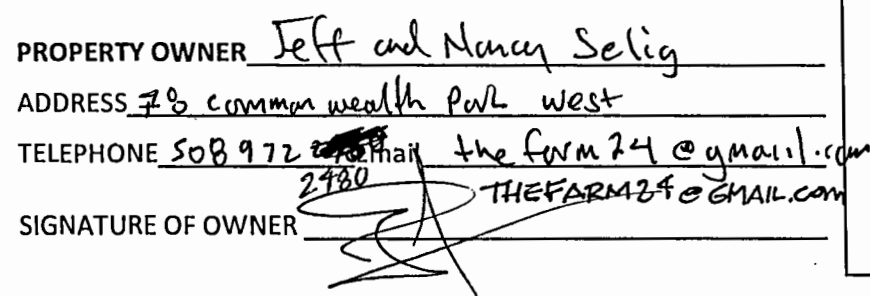 PROPERTY OWNER Jeff and Nancy Selig
ADDRESS 78 commonwealth Park west
TELEPHONE 508 972 email the farm 24 @ gmail.com
2480 THEFARM24@GMAIL.com
SIGNATURE OF OWNER